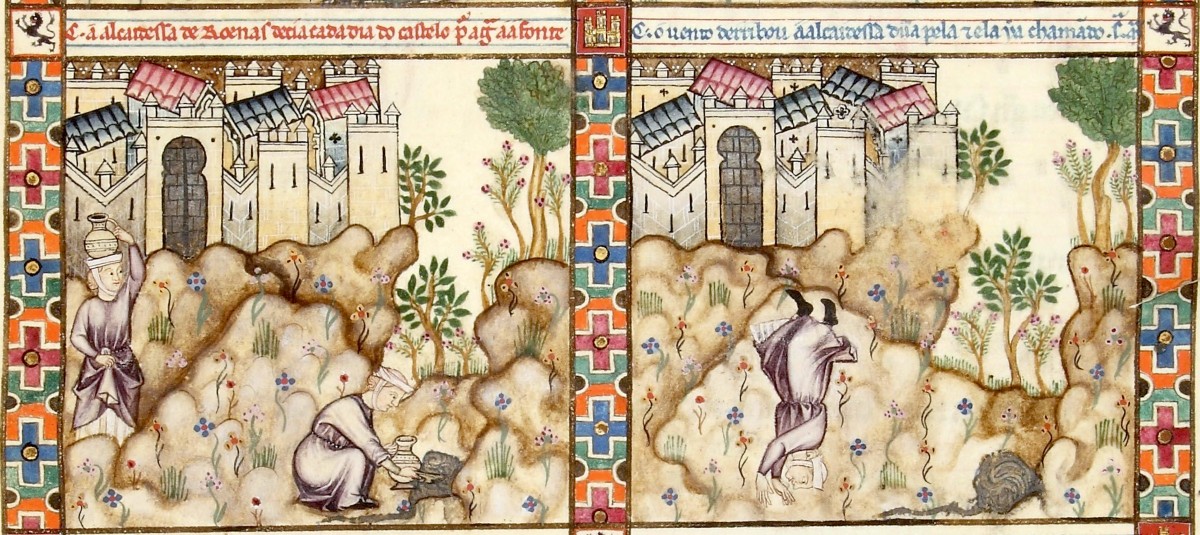 C. a alcaidessa de Roenas decia cada dia do castelo pͬ agͣ aa fonte
C. o uento derribou a alcaidessa dũa pela ⁊ ela chamãdo. Sͣ